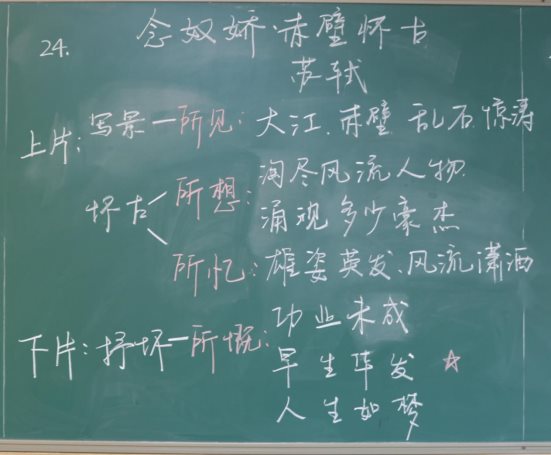 24. 念奴娇·赤壁怀古
苏轼
上片:写景—所见:大江、赤壁 乱石、惊涛
怀古 所想:淘尽风流人物
涌现多少豪杰
所忆:雄姿英发、风流潇洒
下片:抒怀—所慨:功业未成
早生华发 ☆
人生如梦